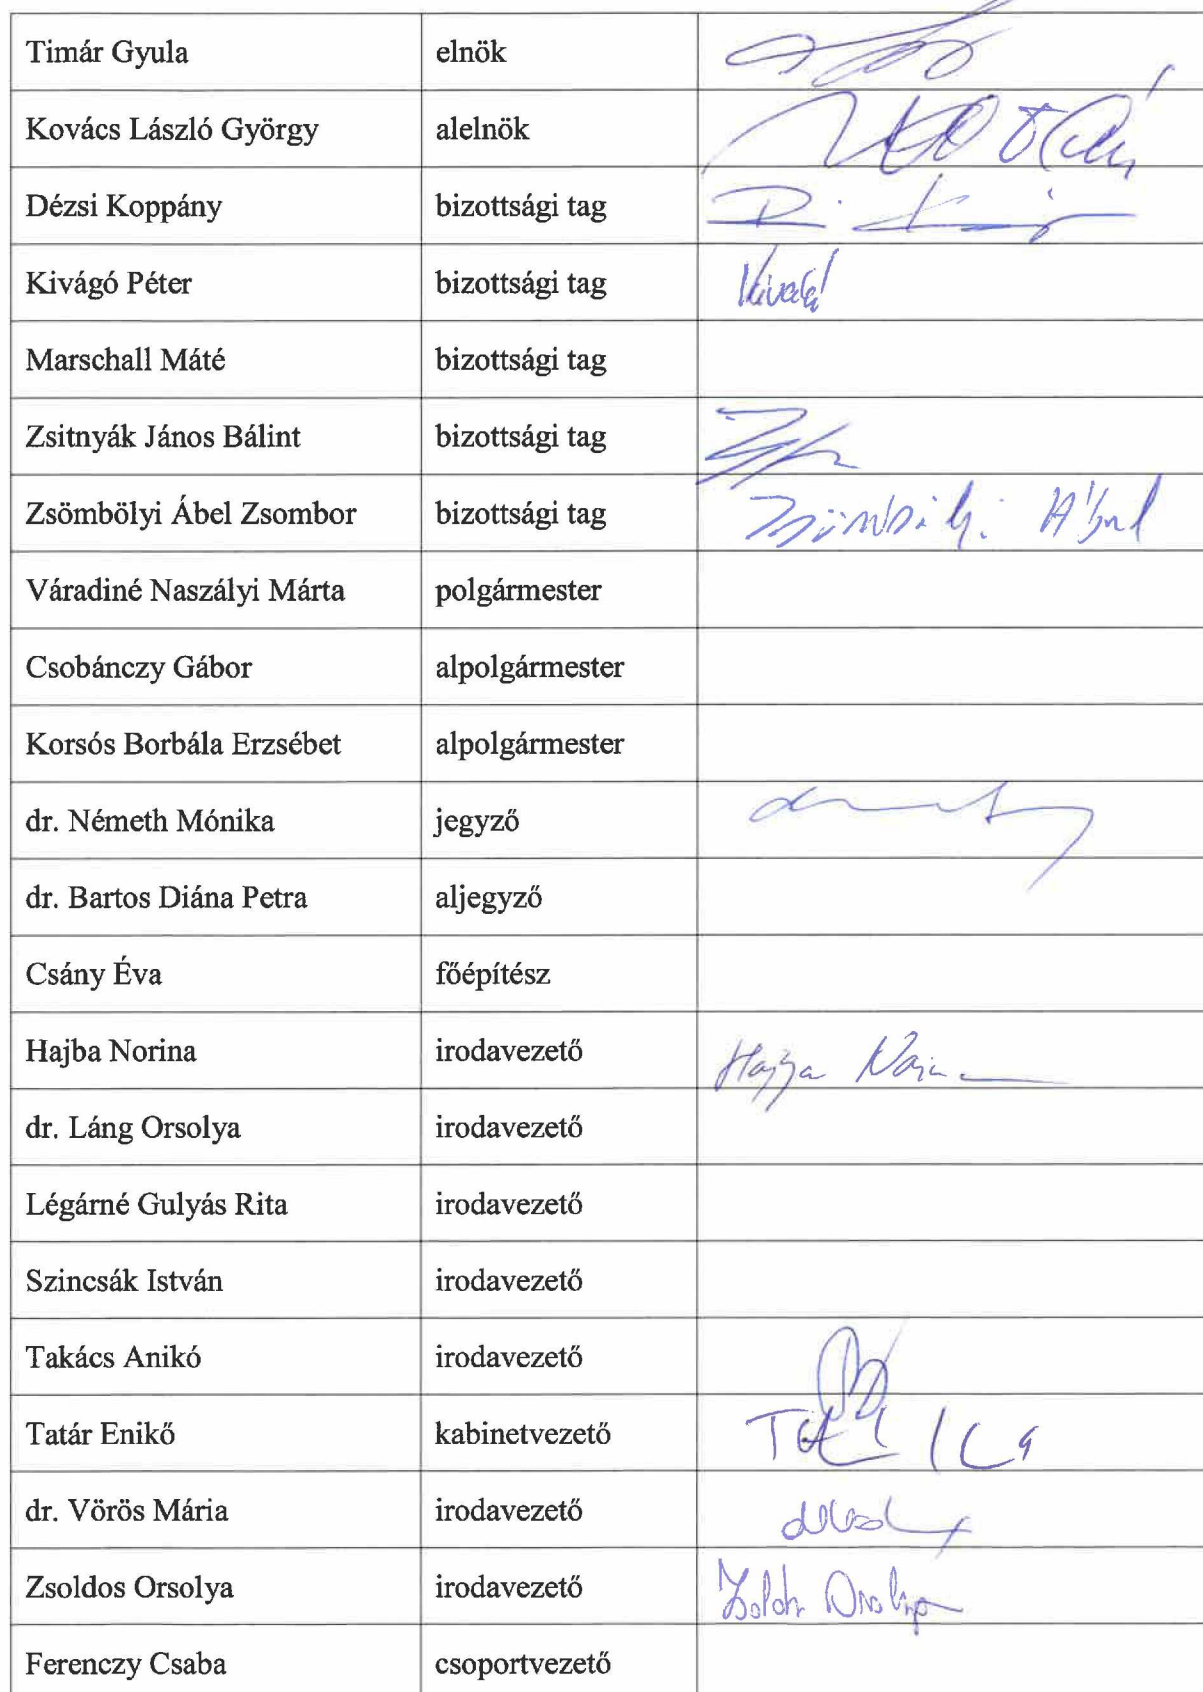 Timár Gyula elnök
Kovács László György alelnök
Dézsi Koppány bizottsági tag
Kivágó Péter bizottsági tag
Marschall Máté bizottsági tag
Zsitnyák János Bálint bizottsági tag
Zsömbölyi Ábel Zsombor bizottsági tag Zsömbölyi Ábel
Váradiné Naszályi Márta polgármester
Csobánczy Gábor alpolgármester
Korsós Borbála Erzsébet alpolgármester
dr. Németh Mónika jegyző
dr. Bartos Diána Petra aljegyző
Csány Éva főépítész
Hajba Norina irodavezető Hajba Norina
dr. Láng Orsolya irodavezető
Légárné Gulyás Rita irodavezető
Szincsák István irodavezető
Takács Anikó irodavezető
Tatár Enikő kabinetvezető
dr. Vörös Mária irodavezető
Zsoldos Orsolya irodavezető Zsoldos Orsolya
Ferenczy Csaba csoportvezető